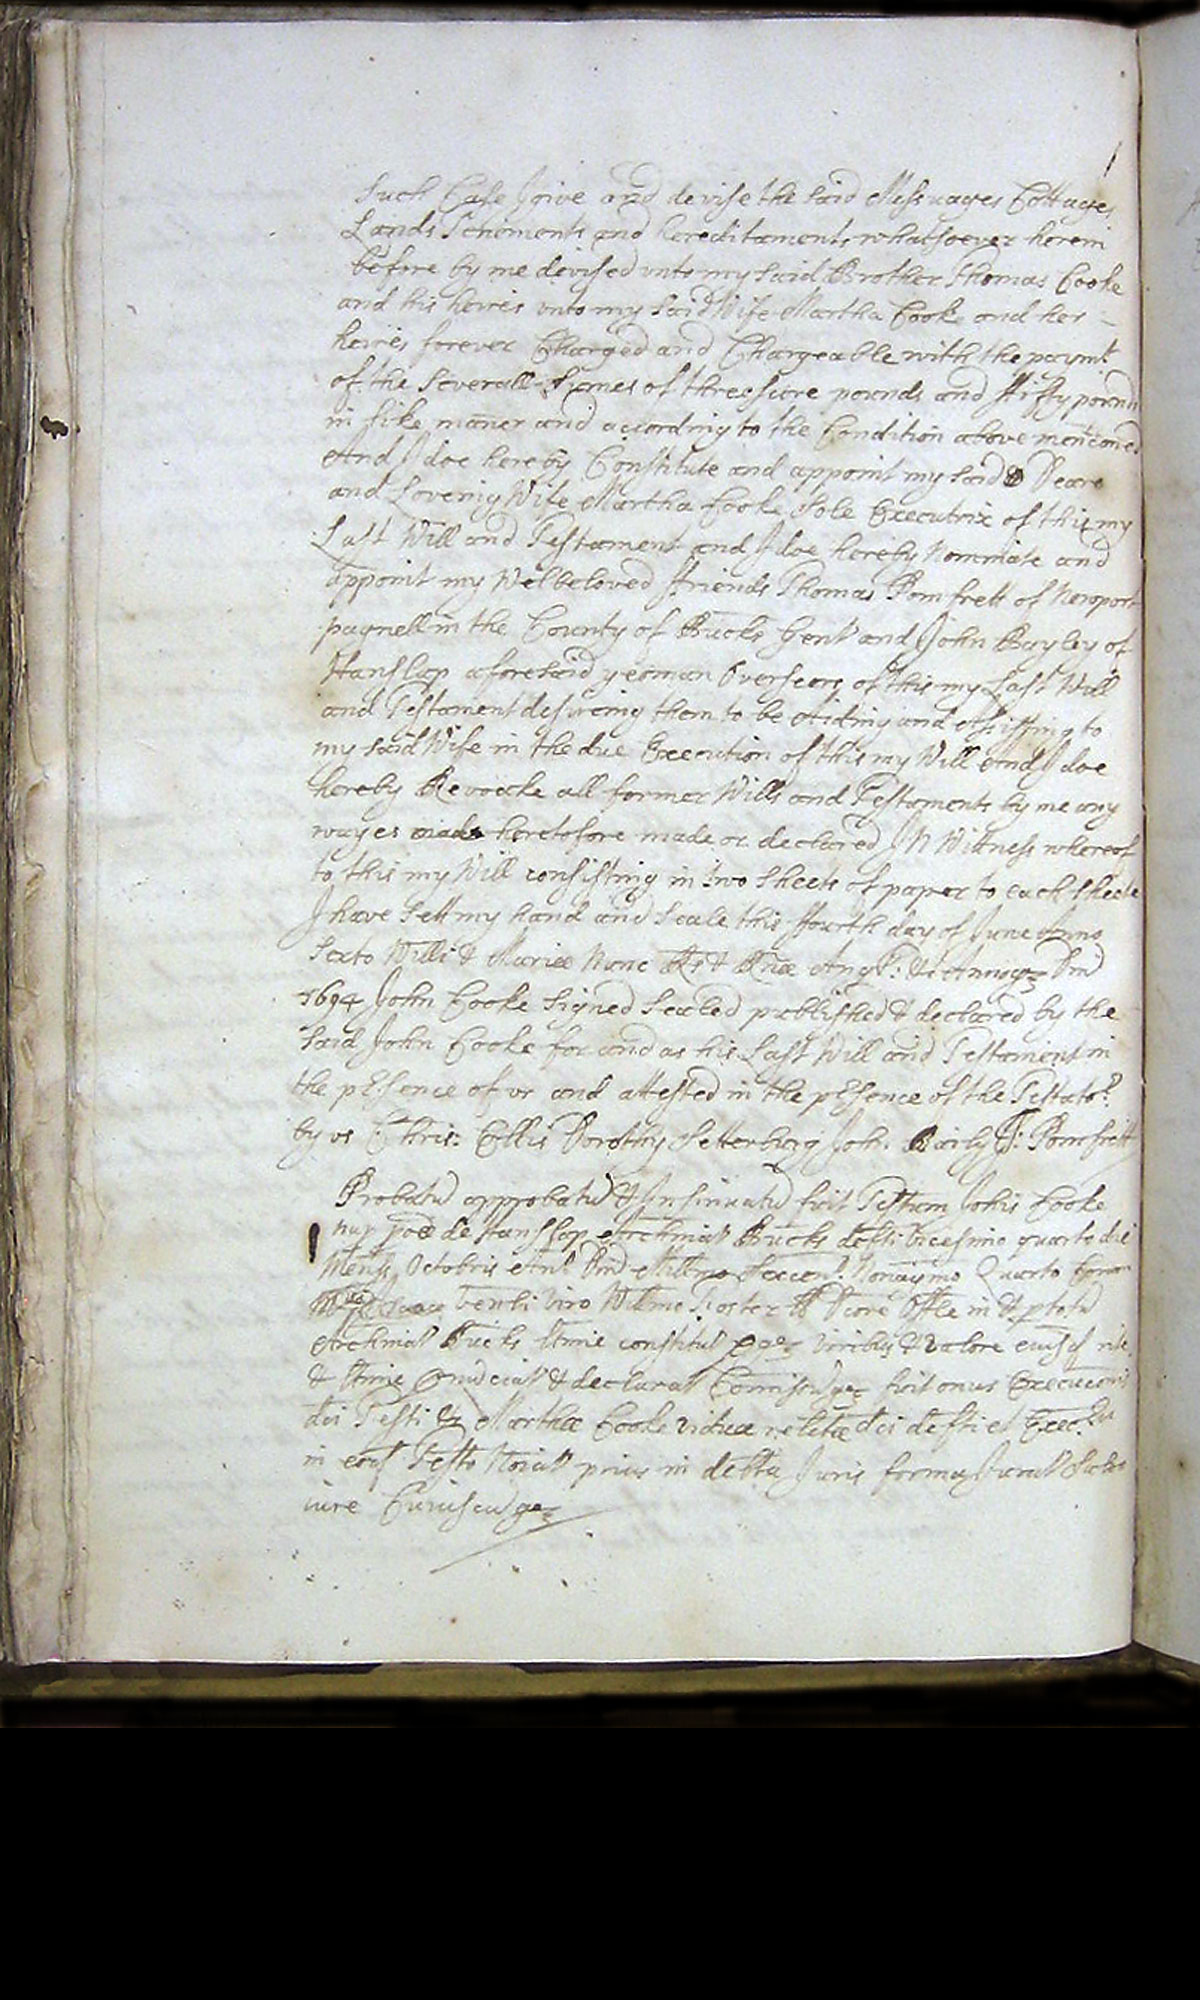 Such Case I give and devise the said Messuages Cottages
Lands Tenements and hereditaments whatsoever herein
before by me devised unto my said Brother Thomas Cooke
and his heires unto my said Wife Martha Cooke and her
heires forever Charged and Chargeable with the paymt
of the Severall Summes of threescore pounds and ffiffty pounds
in like maner and according to the Condition above mencioned
And I doe hereby Constitute and appoint my said Deare
and Loveing Wife Martha Cooke Sole Executrix of this my
Last Will and Testament and I doe hereby Nominate and
appoint my Welbeloved ffriends Thomas Pomfrett of Newport
pagnell in the County of Bucks Gent and John Bayley of
Hanslap aforesaid yeoman Overseers of this my Last Will
and Testament desireing them to be Aiding and Assisting to
my said Wife in the due Execution of this my Will And I doe
hereby Revocke all former Wills and Testaments by me any
wayes made heretofore made or declared In Wittness whereof
to this my Will consisting in two Sheets of paper to each sheete
I have Sett my hand and Seale this ffourth day of June Anno
Sexto Willi & Mariæ Nunc Rs & Rnæ Angl: & Annoq Dni
1694 John Cooke Signed Sealed published & declared by the
said John Cooke for and as his Last Will and Testament in
the psence of us and attested in the psence of the Testator
by us Chris: Ellis Dorothy John. Baily T: Pomfrett
Probatu approbatu & Insinuatu fuit Testum Johis Cooke
nup poe de Hanslop Archinat Bucks defti vicesimo quarto die
Mensis Octobris Anl Dni Millmo Sexcent. Nonagmo Quarto Coram
venli Viro Willmo Foster Offle in & p totu
Archinat Bucks ltime constitut viribus & valore
& ltime & declarat Comisoq fuit onus Execucionis
dci Testi Marthæ Cooke viduæ relictæ dci defti et Execr
in eod Testo Noiat prius in debita Juris forma Jurat Salvo
iure Cuiuscuq